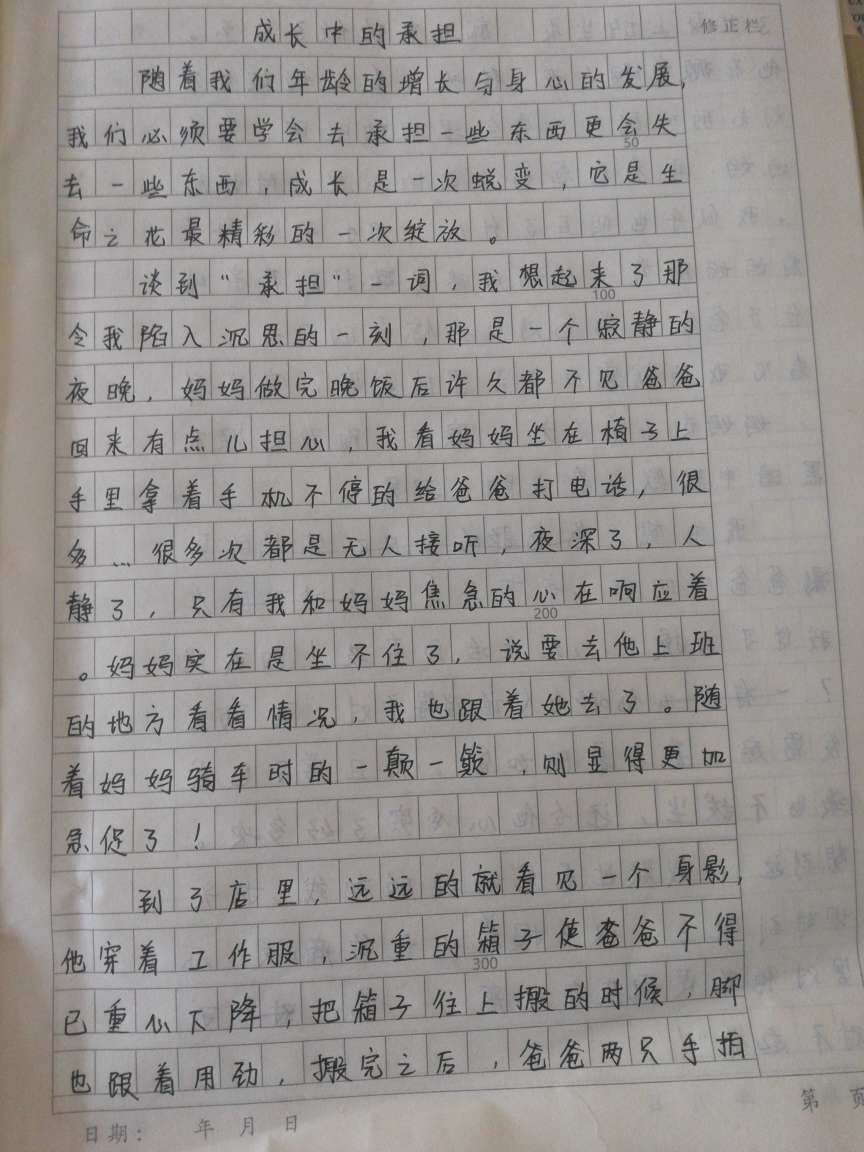 成长中的承担
修正栏
随着我们年龄的增长与身心的发展,
我们必须要学会去承担一些东西更会失
50
去一些东西，成长是一次蜕变，它是生
命之花最精彩的一次绽放。
谈到“承担”一词，我想起来了那
100
令我陷入沉思的一刻，那是一个寂静的
夜晚，妈妈做完晚饭后许久都不见爸爸
回来有点儿担心，我看妈妈坐在椅子上
手里拿着手机不停的给爸爸打电话，很
多…很多次都是无人接听，夜深了，人
静了，只有我和妈妈焦急的心在响应着
200
。妈妈实在是坐不住了，说要去他上班
的地方看看情况，我也跟着她去了。随
着妈妈骑车时的一颠一簸，则显得更加
急促了！
到了店里，远远的就看见一个身影,
他穿着工作服，沉重的箱子使爸爸不得
300
已重心下降，把箱子往上搬的时候，脚
也跟着用劲，搬完之后，爸爸两只手拍
日期： 年 月 日
第 页